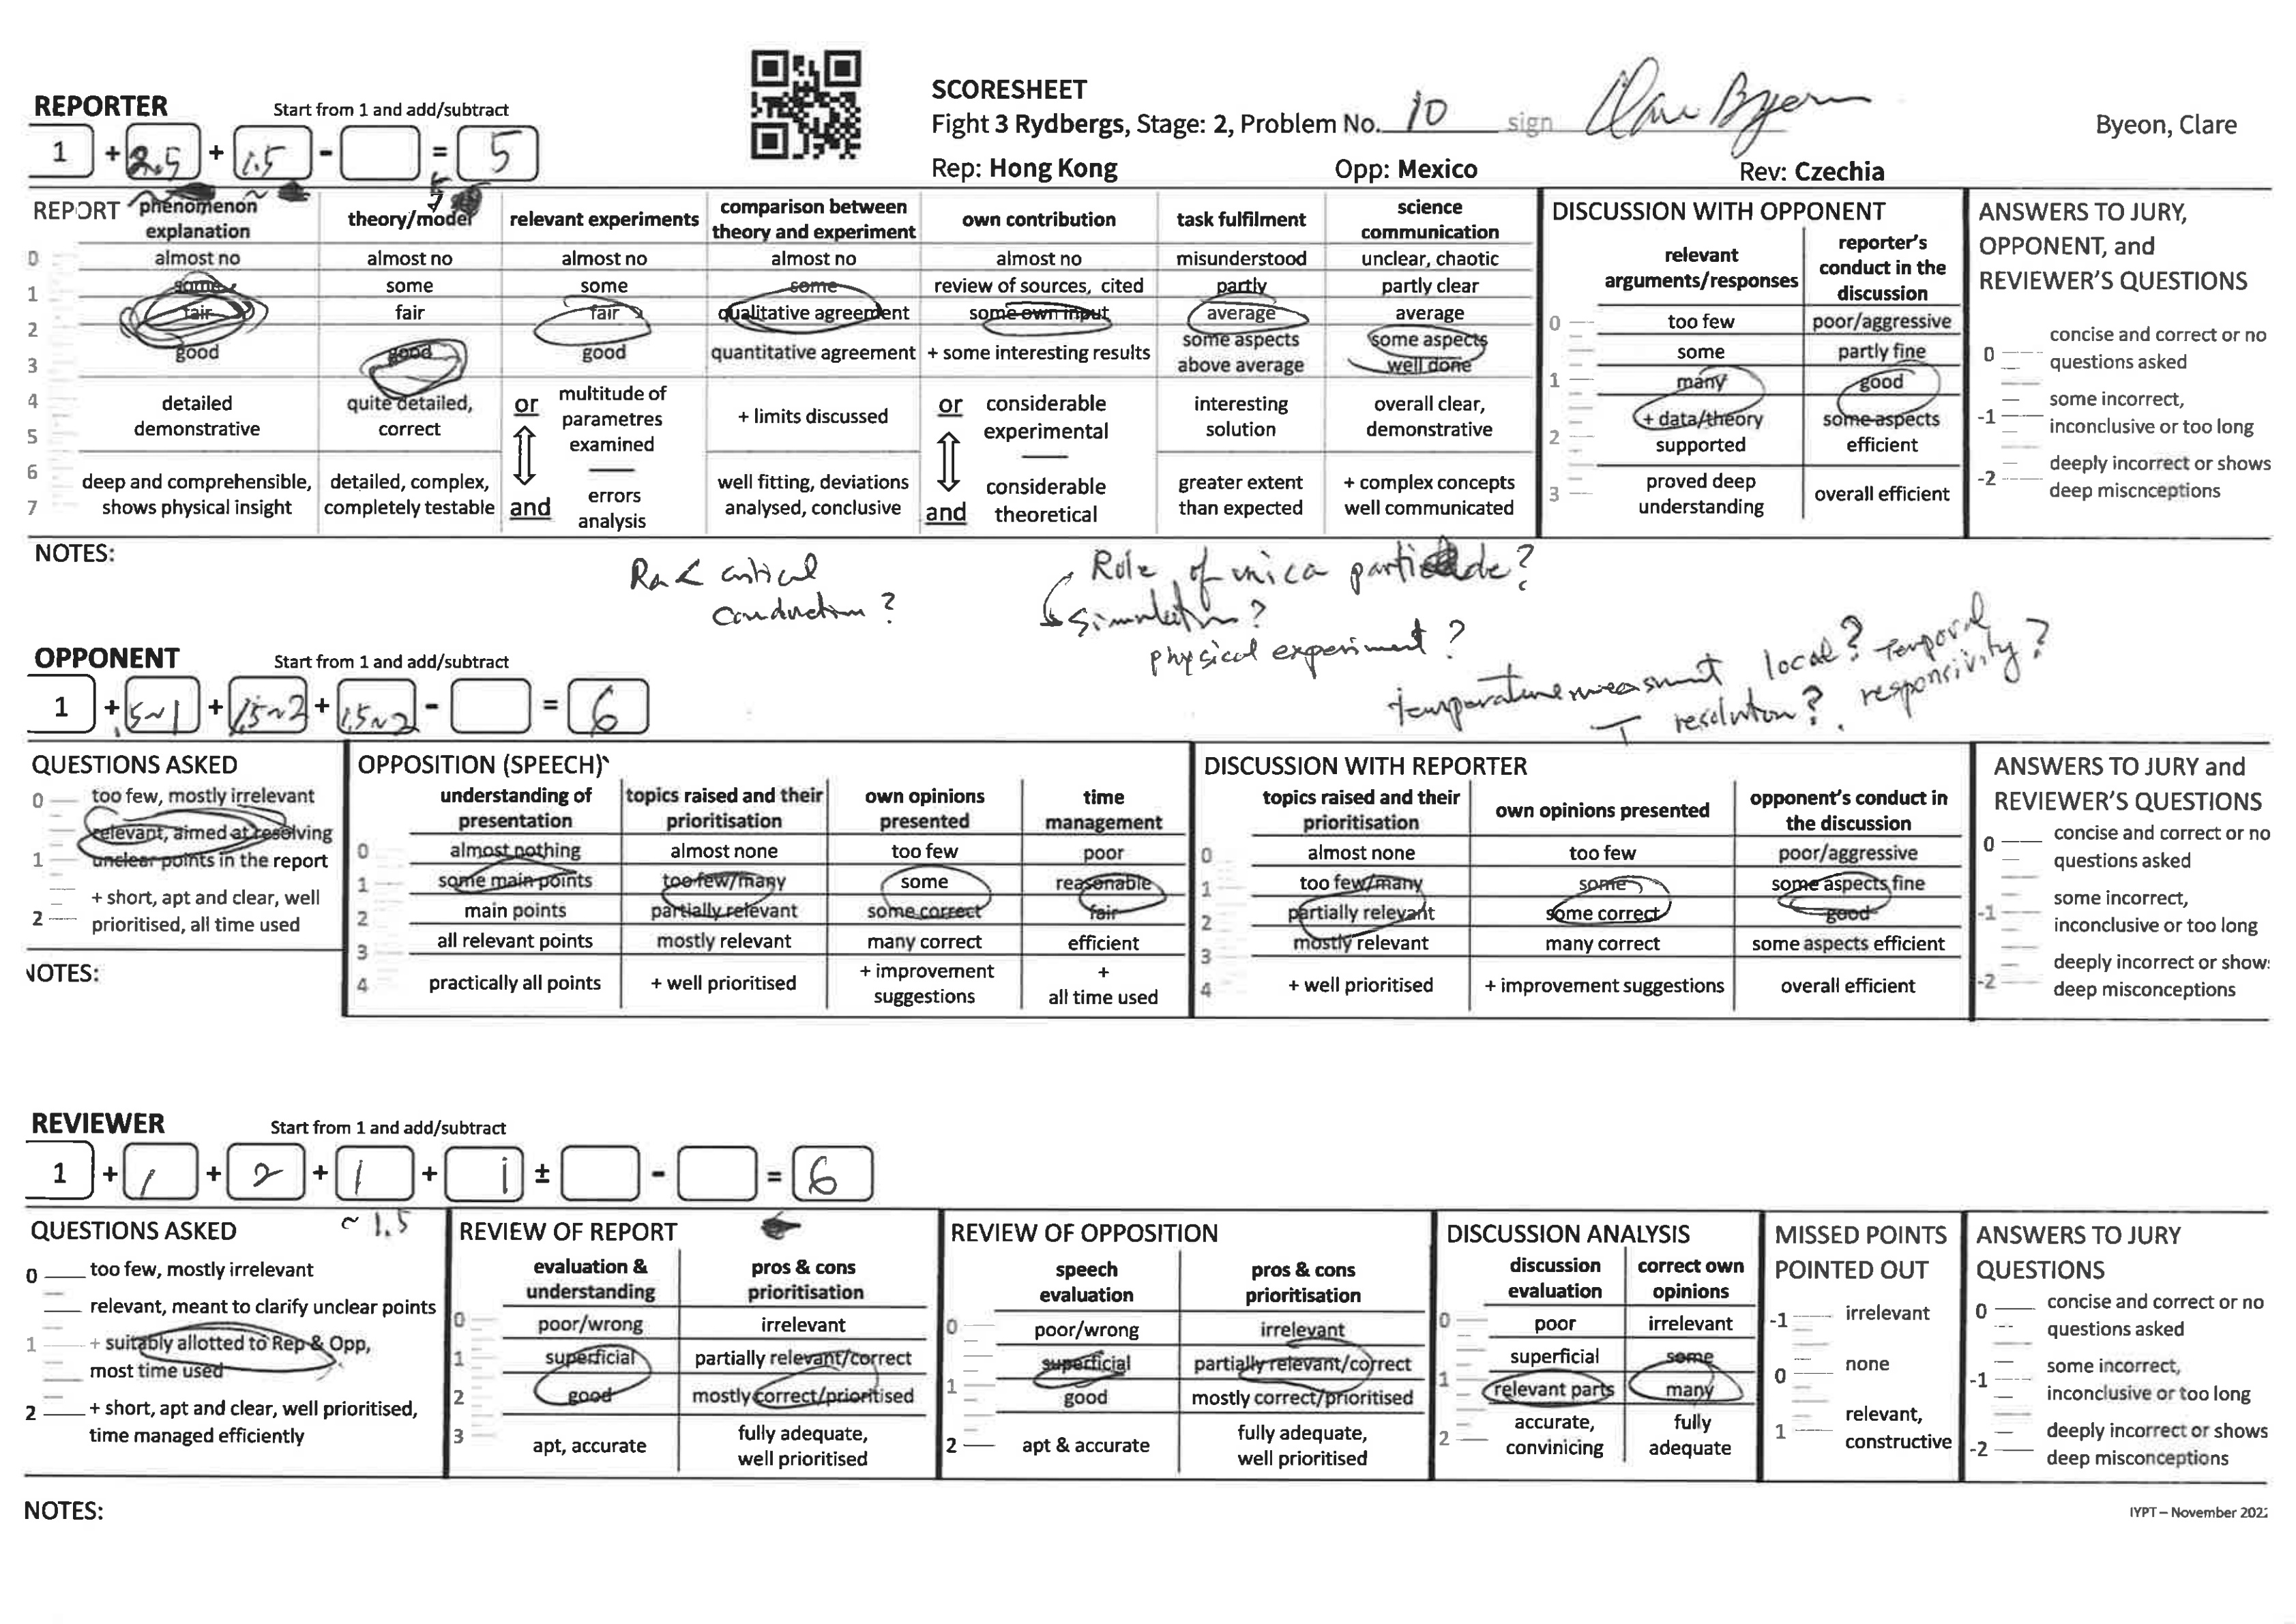 SCORESHEET
Fight 3 Rydbergs, Stage: 2, Problem No. 10 sign Clare Byeon
Byeon, Clare
Rep: Hong Kong Opp: Mexico Rev: Czechia
REPORTER Start from 1 and add/subtract
1 + 2.5 + 1.5 - = 5
REPORT
phenomenon explanation
almost no
some
fair
good
detailed demonstrative
deep and comprehensible, shows physical insight
theory/model
almost no
some
fair
good
quite detailed, correct
detailed, complex, completely testable
relevant experiments
almost no
some
fair
good
or
multitude of parametres examined
and
errors analysis
comparison between theory and experiment
almost no
some
qualitative agreement
quantitative agreement
+ limits discussed
well fitting, deviations analysed, conclusive
own contribution
almost no
review of sources, cited
some own input
+ some interesting results
or
considerable experimental
and
considerable theoretical
task fulfilment
misunderstood
partly
average
some aspects above average
interesting solution
greater extent than expected
science communication
unclear, chaotic
partly clear
average
some aspects well done
overall clear, demonstrative
+ complex concepts well communicated
0
1
2
3
4
5
6
7
DISCUSSION WITH OPPONENT
relevant arguments/responses
too few
some
many
+ data/theory supported
proved deep understanding
reporter's conduct in the discussion
poor/aggressive
partly fine
good
some aspects efficient
overall efficient
0
1
2
3
ANSWERS TO JURY, OPPONENT, and REVIEWER'S QUESTIONS
0 concise and correct or no questions asked
-1 some incorrect, inconclusive or too long
-2 deeply incorrect or shows deep miscnceptions
NOTES:
Ra < critical
conduction?
Role of mica particle?
Simulation?
physical experiment?
temperature measurment local? Temporal
T resolution? responsivity?
OPPONENT Start from 1 and add/subtract
1 + .5~1 + 1.5~2 + 1.5~2 - = 6
QUESTIONS ASKED
0 too few, mostly irrelevant
relevant, aimed at resolving
1 unclear points in the report
+ short, apt and clear, well
2 prioritised, all time used
NOTES:
OPPOSITION (SPEECH)
understanding of presentation
almost nothing
some main points
main points
all relevant points
practically all points
topics raised and their prioritisation
almost none
too few/many
partially relevant
mostly relevant
+ well prioritised
own opinions presented
too few
some
some correct
many correct
+ improvement suggestions
time management
poor
reasonable
fair
efficient
+ all time used
0
1
2
3
4
DISCUSSION WITH REPORTER
topics raised and their prioritisation
almost none
too few/many
partially relevant
mostly relevant
+ well prioritised
own opinions presented
too few
some
some correct
many correct
+ improvement suggestions
opponent's conduct in the discussion
poor/aggressive
some aspects fine
good
some aspects efficient
overall efficient
0
1
2
3
4
ANSWERS TO JURY and REVIEWER'S QUESTIONS
0 concise and correct or no questions asked
-1 some incorrect, inconclusive or too long
-2 deeply incorrect or show: deep misconceptions
REVIEWER Start from 1 and add/subtract
1 + 1 + 2 + 1 + 1 ± - = 6
~ 1.5
QUESTIONS ASKED
0 too few, mostly irrelevant
relevant, meant to clarify unclear points
1 + suitably allotted to Rep & Opp,
most time used
2 + short, apt and clear, well prioritised,
time managed efficiently
REVIEW OF REPORT
evaluation & understanding
poor/wrong
superficial
good
apt, accurate
pros & cons prioritisation
irrelevant
partially relevant/correct
mostly correct/prioritised
fully adequate, well prioritised
0
1
2
3
REVIEW OF OPPOSITION
speech evaluation
poor/wrong
superficial
good
apt & accurate
pros & cons prioritisation
irrelevant
partially relevant/correct
mostly correct/prioritised
fully adequate, well prioritised
0
1
2
DISCUSSION ANALYSIS
discussion evaluation
poor
superficial
relevant parts
accurate, convinicing
correct own opinions
irrelevant
some
many
fully adequate
0
1
2
MISSED POINTS POINTED OUT
-1 irrelevant
0 none
1 relevant, constructive
ANSWERS TO JURY QUESTIONS
0 concise and correct or no questions asked
-1 some incorrect, inconclusive or too long
-2 deeply incorrect or shows deep misconceptions
NOTES:
IYPT – November 202